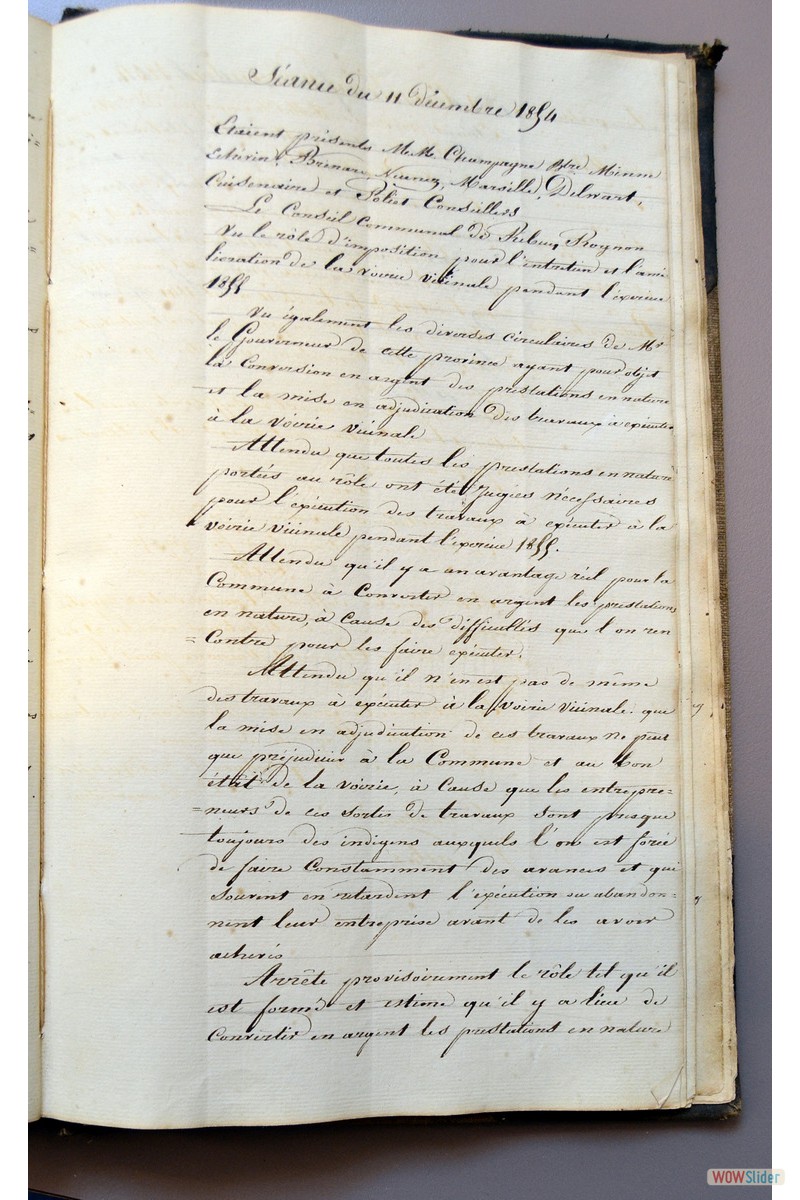 Séance du 11 décembre 1854
Etaient présents M.M. Champagne Btre Minon
Echevin, Brenart, Nennez, Marsille, Delwart,
Cuisenaire et Poliet Conseillers
Le Conseil Communal de Rebecq Rognon
Vu le rôle d'imposition pour l'entretien et l'amé
lioration de la voirie vicinale pendant l'exercice
1855
Vu également les diverses circulaires de Mr
le Gouverneur de cette province ayant pour objet
la Conversion en argent des prestations en nature
et la mise en adjudication des travaux à exécuter
à la voirie vicinale
Attendu que toutes les prestations en nature
portées au rôle ont été jugées nécessaires
pour l'exécution des travaux à exécuter à la
voirie vicinale pendant l'exercice 1855.
Attendu qu'il y a un avantage réel pour la
Commune à Convertir en argent les prestations
en nature, à cause des difficultés que l'on ren
= Contre pour les faire exécuter.
Attendu qu'il n'en est pas de même
des travaux à exécuter à la voirie vicinale. que
la mise en adjudication de ces travaux ne peut
que préjudicier à la Commune et au bon
état de la voirie, à cause que les entrepre=
=neurs de ces sortes de travaux sont presque
toujours des indigens auxquels l'on est forcé
de faire Constamment des avances et qui
souvent en retardent l'exécution ou abandon=
nent leur entreprise avant de les avoir
achevés
Arrête provisoirement le rôle tel qu'il
est formé et estime qu'il y a lieu de
Convertir en argent les prestations en nature
WOWSlider